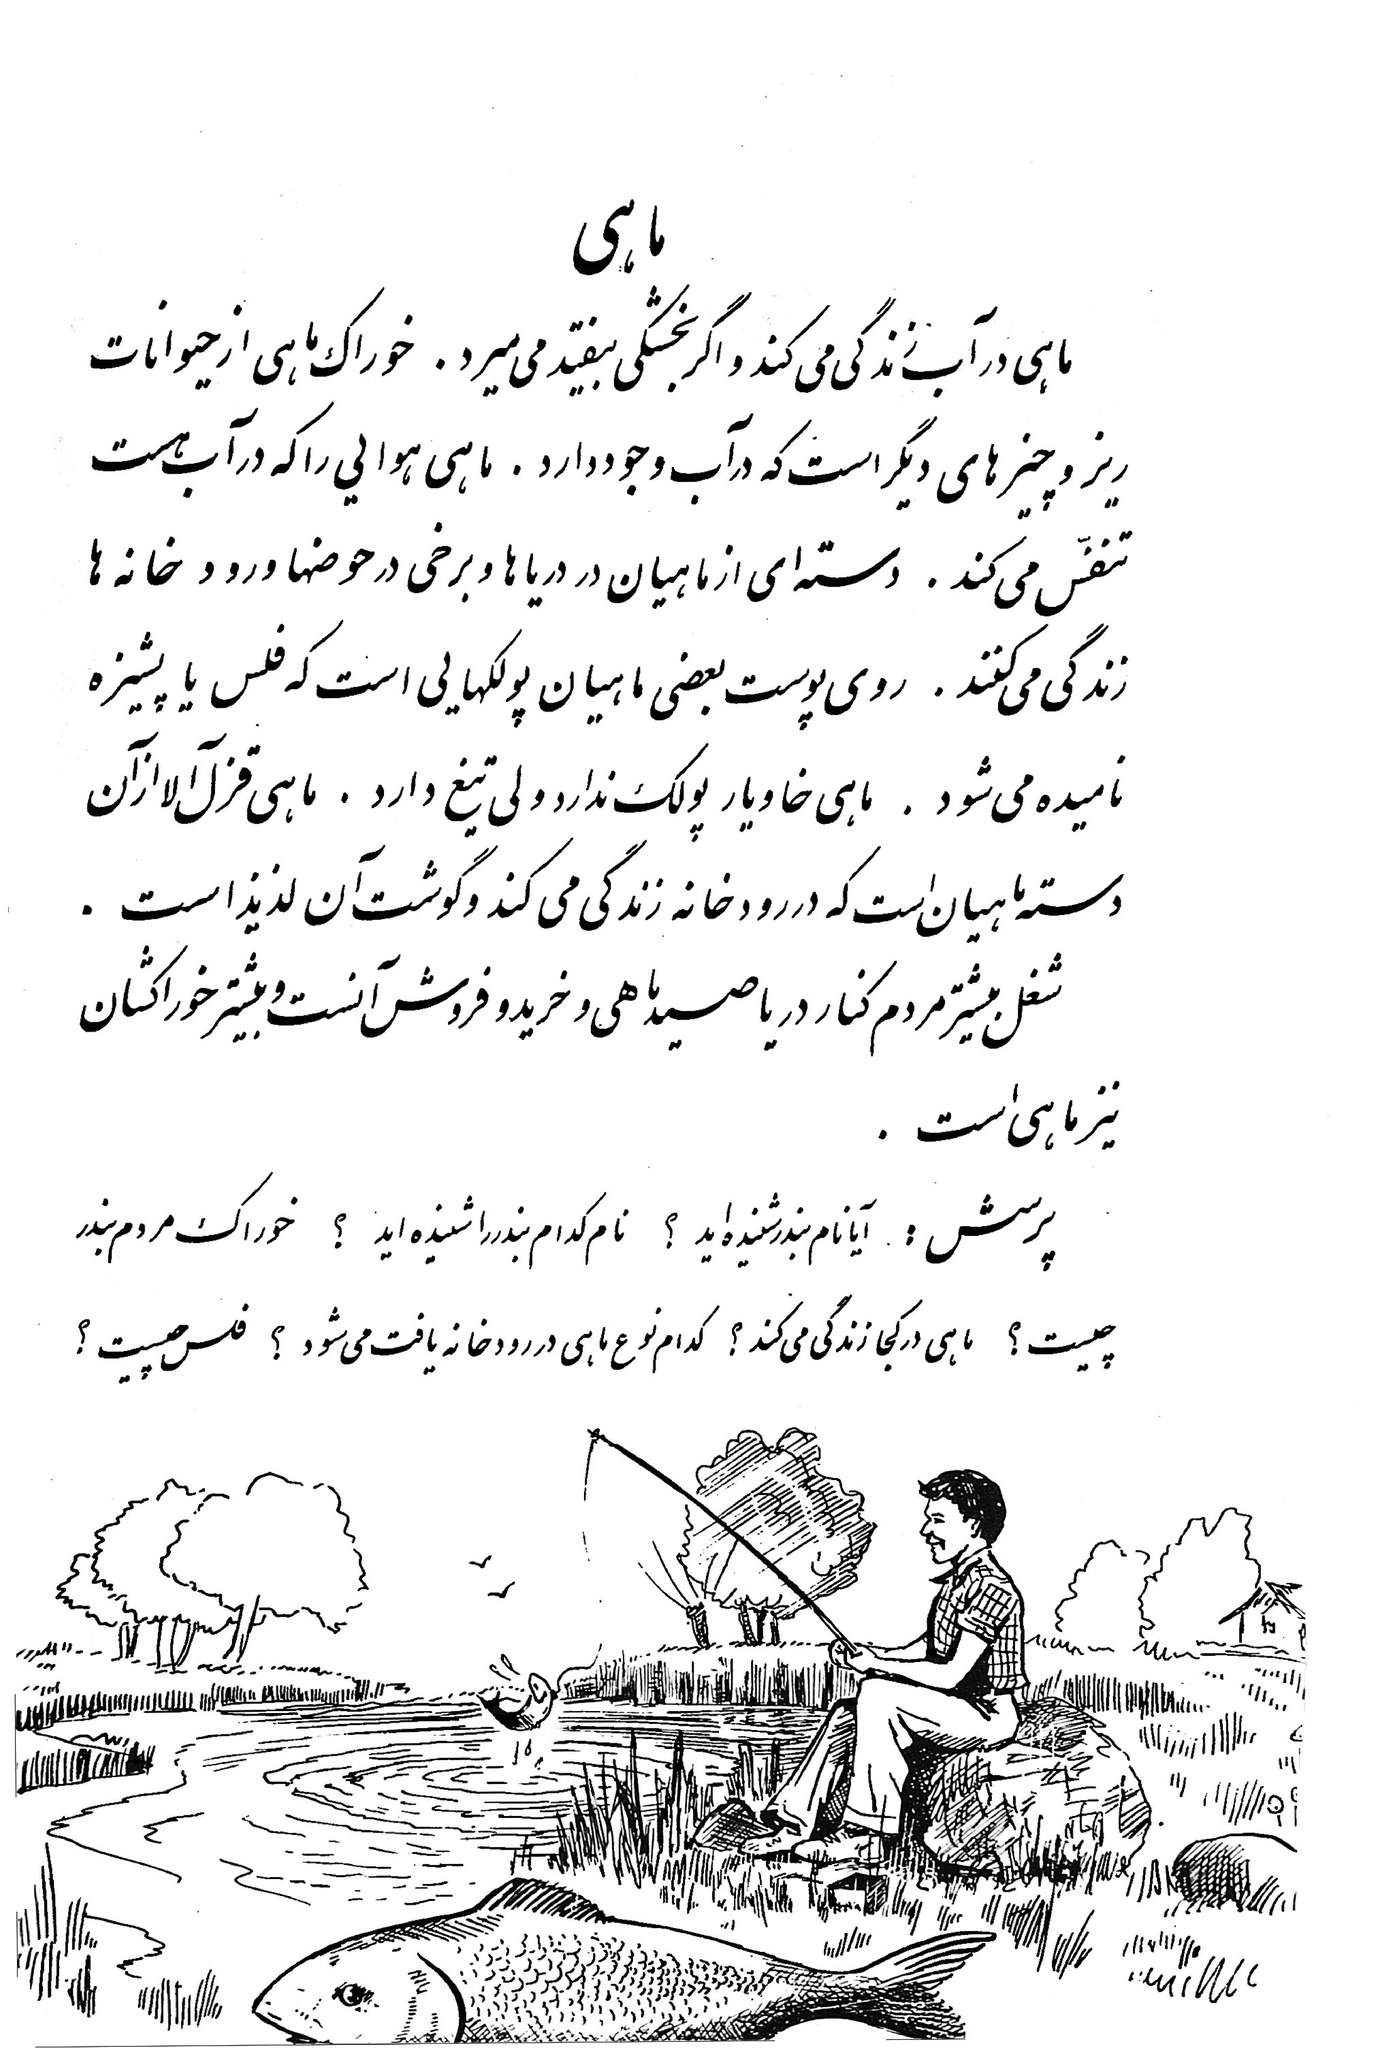 ماهی
ماهی در آب زندگی می کند و اگر بخشکی بیفتد می میرد . خوراک ماهی از حیوانات
ریز و چیز های دیگر است که در آب وجود دارد . ماهی هوایی را که در آب هست
تنفّس می کند . دسته ای از ماهیان در دریا ها و برخی در حوضها و رود خانه ها
زندگی می کنند . روی پوست بعضی ماهیان پولکهایی است که فلس یا پشیزه
نامیده می شود . ماهی خاویار پولک ندارد ولی تیغ دارد . ماهی قزل آلا از آن
دسته ماهیان است که در رود خانه زندگی می کند و گوشت آن لذیذ است .
شغل بیشتر مردم کنار دریا صید ماهی و خرید و فروش آنست و بیشتر خوراکشان
نیز ماهی است .
پرسش : آیا نام بندر شنیده اید ؟ نام کدام بندر را شنیده اید ؟ خوراک مردم بندر
چیست ؟ ماهی در کجا زندگی می کند ؟ کدام نوع ماهی در رود خانه یافت می شود ؟ فلس چیست ؟